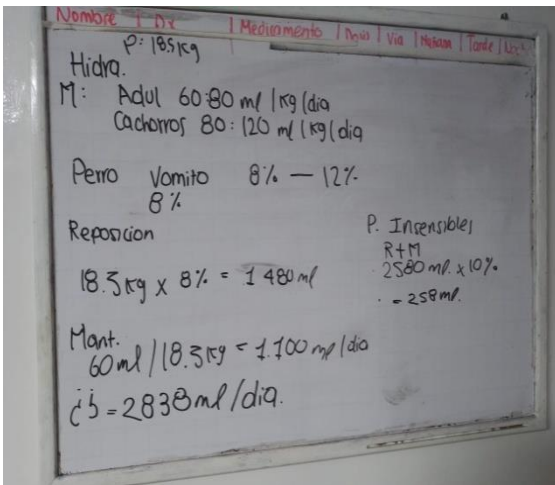 Nombre | Dx | Medicamento | Dosis | Via | Mañana | Tarde |
P: 18.5 Kg
Hidra.
M: Adul 60:80 ml / Kg / dia
Cachorros 80:120 ml / Kg / dia
Perro Vomito 8% — 12%
8%
Reposicion
18.5 Kg x 8% = 1480 ml
P. Insensibles
R+M
2580 ml. x 10%
= 258 ml.
Mant.
60 ml / 18.5 Kg = 1.100 ml / dia
= 2838 ml / dia.